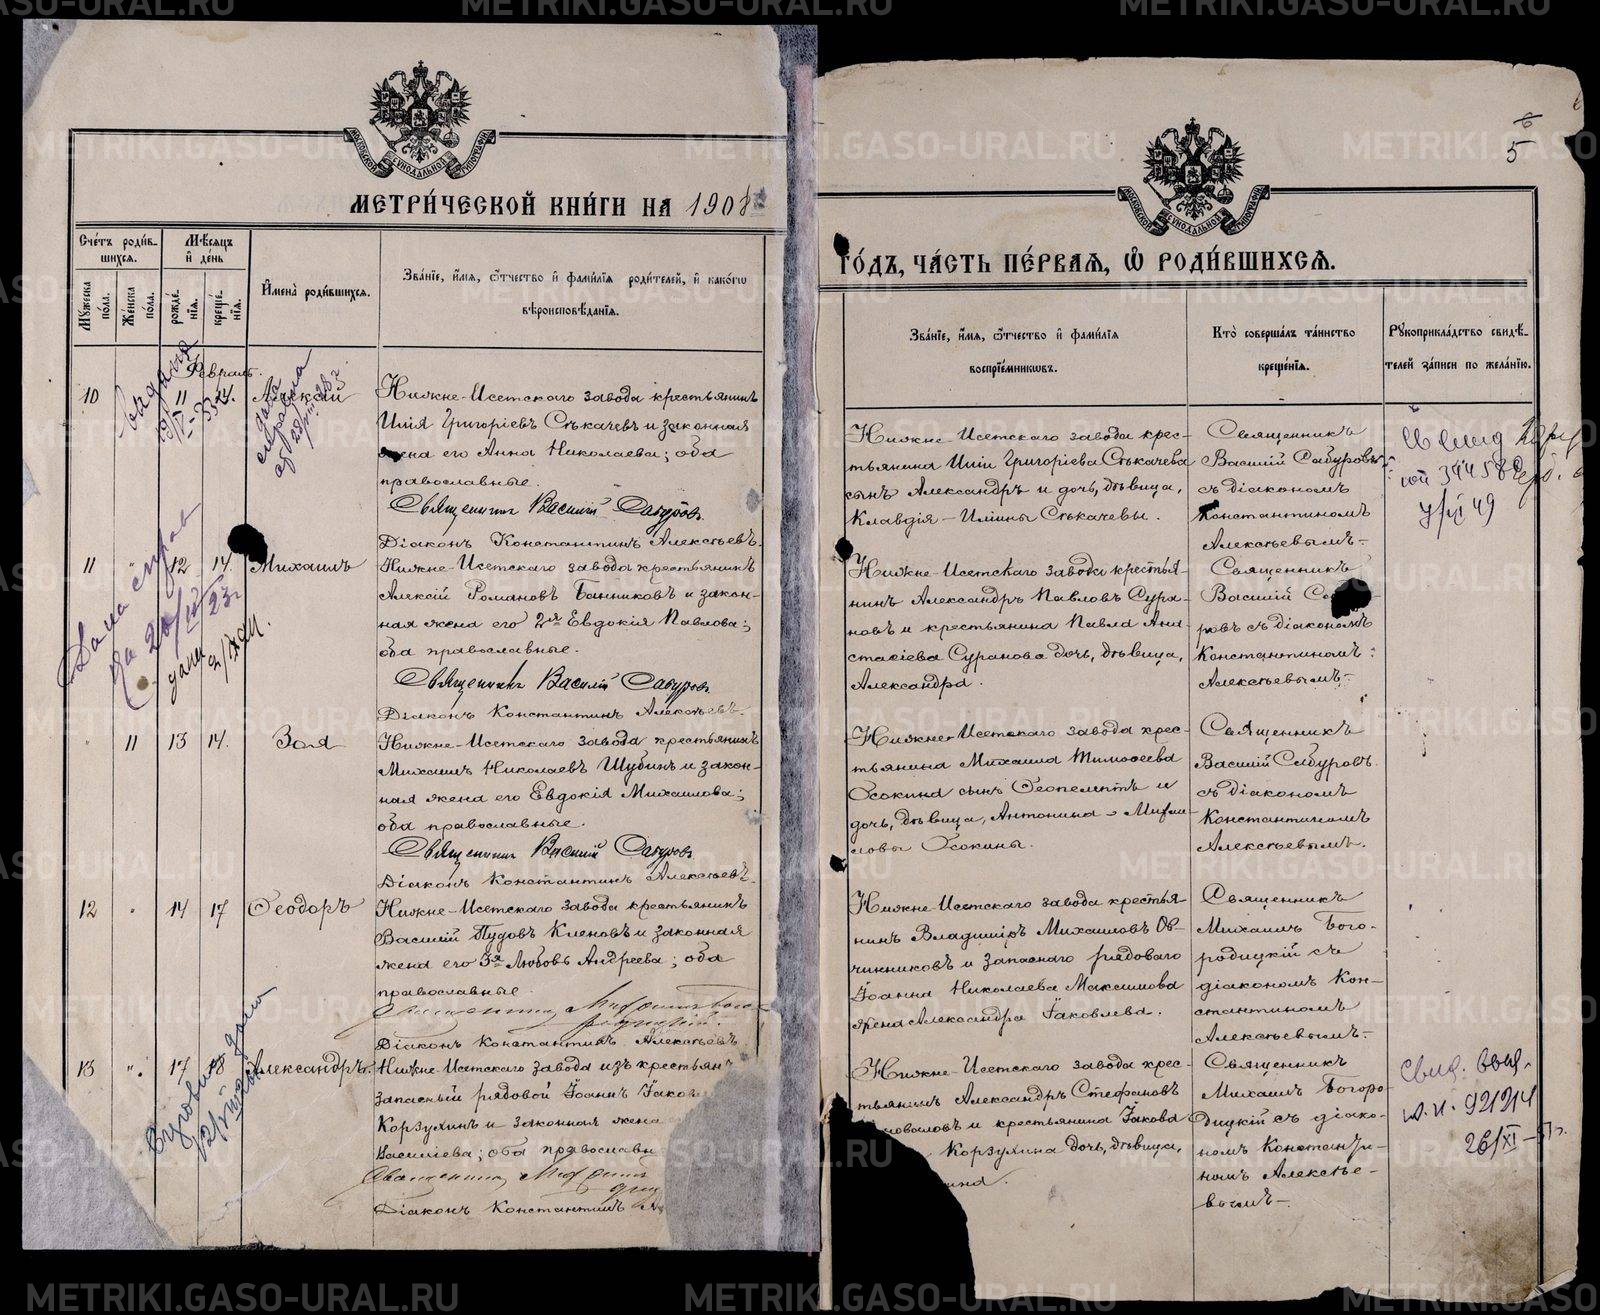 METRIKI.GASO-URAL.RU
МЕТРИ́ЧЕСКОЙ КНИ́ГИ НА 1908
Сче́тъ роди́в-
шихсѧ.
Мужеска пола.
Же́нска пола.
Мѣ́сѧцъ и де́нь
рожде́-
нїѧ.
креще́-
нїѧ.
И҆мена̀ роди́вшихсѧ.
Зва́нїе, и҆́мѧ, ѻ҆́тчество и҆ фами́лїѧ роди́телей, и҆ како́гѡ
вѣроисповѣ́данїѧ.
Февраль.
10 11 14. Алексій
Нижне-Исетскаго завода крестьянинъ
Илія Григоріевъ Сѣкачевъ и законная
жена его Анна Николаева; оба
православные.
Священникъ Василій Сабуровъ.
Діаконъ Константинъ Алексѣевъ.
11 " 12 14. Михаилъ
Нижне-Исетскаго завода крестьянинъ
Алексій Романовъ Банниковъ и закон-
ная жена его 2я Евдокія Павлова;
оба православные.
Священникъ Василій Сабуровъ
Діаконъ Константинъ Алексѣевъ.
" 11 13 14. Зоя
Нижне-Исетскаго завода крестьянинъ
Михаилъ Николаевъ Шубинъ и закон-
ная жена его Евдокія Михаилова;
оба православные.
Священникъ Василій Сабуровъ
Діаконъ Константинъ Алексѣевъ.
12 " 14 17 Ѳеодоръ
Нижне-Исетскаго завода крестьянинъ
Василій Пудовъ Кленовъ и законная
жена его 3я Любовь Андреева; оба
православные.
Священникъ Михаилъ Бого-
родицкій.
Діаконъ Константинъ Алексѣевъ
13 " 17 18 Александръ.
Нижне-Исетскаго завода изъ крестьян
запасный рядовой Іоаннъ Іаков
Корзухинъ и законная жена
Василіева; оба православн
Священникъ Михаилъ
Діаконъ Константинъ А
Дана справ
дана
5
ГО́ДЪ, ЧА́СТЬ ПЕ́РВАѦ, Ѡ҆ РОДИ́ВШИХСѦ.
Зва́нїе, и҆́мѧ, ѻ҆́тчество и҆ фами́лїѧ
воспрїе́мникѡвъ.
Кто̀ соверша́лъ та́инство
креще́нїѧ.
Рꙋкоприкла́дство свидѣ́-
телей за́писи по жела́нїю.
Нижне-Исетскаго завода крес-
тьянина Иліи Григоріева Сѣкачева
сынъ Александръ и дочь, дѣвица,
Клавдія-Иліины Сѣкачевы.
Священникъ
Василій Сабуровъ
съ діакономъ
Константиномъ
Алексѣевымъ-
Нижне-Исетскаго завода крестья-
нинъ Александръ Павловъ Сура-
новъ и крестьянина Павла Ана-
стасіева Суранова дочь, дѣвица,
Александра.
Священникъ
Василій Сабу
ровъ съ діакономъ
Константиномъ
Алексѣевымъ-
Нижне-Исетскаго завода крес-
тьянина Михаила Тимоѳеева
Осокина сынъ Ѳеопемптъ и
дочь, дѣвица, Антонина - Михаи-
ловы Осокины.
Священникъ
Василій Сабуровъ
съ діакономъ
Константиномъ
Алексѣевымъ.
Нижне-Исетскаго завода крестья-
нинъ Владиміръ Михаиловъ Ов-
чинниковъ и запаснаго рядоваго
Іоанна Николаева Максимова
жена Александра Іаковлева.
Священникъ
Михаилъ Бого-
родицкій съ
діакономъ Кон-
стантиномъ
Алексѣевымъ-
Нижне-Исетскаго завода крес-
тьянинъ Александръ Стефановъ
новаловъ и крестьянина Іакова
Корзухина дочь, дѣвица,
ина.
Священникъ
Михаилъ Богоро-
дицкій съ діако-
номъ Константи-
номъ Алексѣе-
вымъ-
Свид. выд.
92124
26/XI